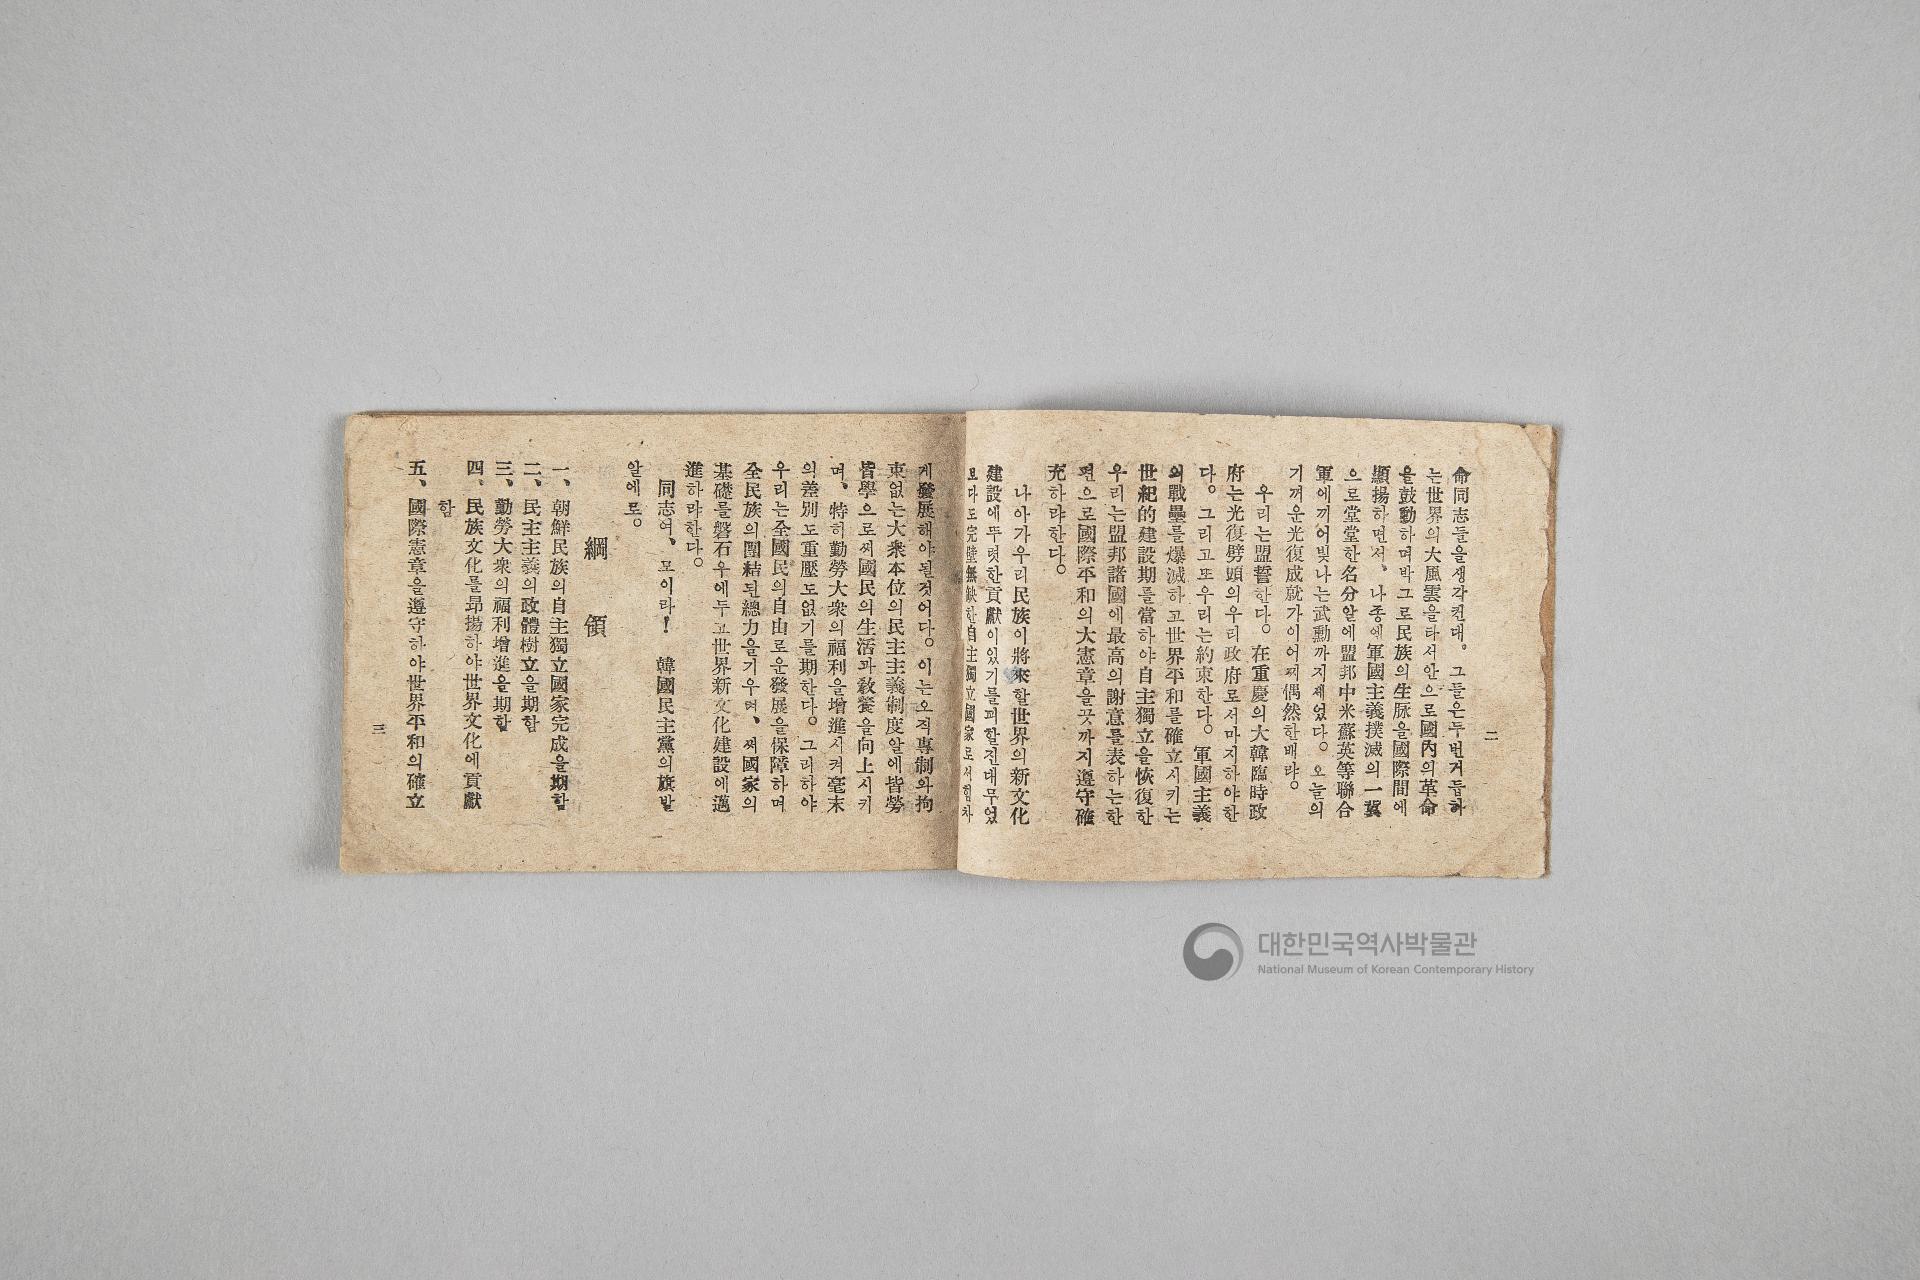 二
命同志들을생각컨대。그들은두번거듭하
는世界의大風雲을타서안으로國內의革命
을鼓動하며박그로民族의生脉을國際間에
顯揚하면서、나종에軍國主義撲滅의一翼
으로堂堂한名分알에盟邦中米蘇英等聯合
軍에끼어빗나는武勳까지세웠다。오늘의
기껴운光復成就가이어찌偶然한배랴。
우리는盟誓한다。在重慶의大韓臨時政
府는光復劈頭의우리政府로서마지하야한
다。그리고또우리는約束한다。軍國主義
의戰壘를爆滅하고世界平和를確立시키는
世紀的建設期를當하야自主獨立을恢復한
우리는盟邦諸國에最高의謝意를表하는한
편으로國際平和의大憲章을끗까지遵守確
充하랴한다。
나아가우리民族이將來할世界의新文化
建設에뚜렷한貢獻이있기를꾀할진대무엇
보다도完璧無缺한自主獨立國家로서힘차
게發展해야될것이다。이는오직專制와拘
束없는大衆本位의民主主義制度알에皆勞
皆學으로써國民의生活과敎養을向上시키
며、特히勤勞大衆의福利를增進시켜毫末
의差別도重壓도없기를期한다。그리하야
우리는全國民의自由로운發展을保障하며
全民族의團結된總力을기우려、써國家의
基礎를磐石우에두고世界新文化建設에邁
進하랴한다。
同志여、모이라！ 韓國民主黨의旗발
알에로。
綱 領
一、朝鮮民族의自主獨立國家完成을期함
二、民主主義의政體樹立을期함
三、勤勞大衆의福利增進을期함
四、民族文化를昻揚하야世界文化에貢獻
함
五、國際憲章을遵守하야世界平和의確立
三
대한민국역사박물관
National Museum of Korean Contemporary History